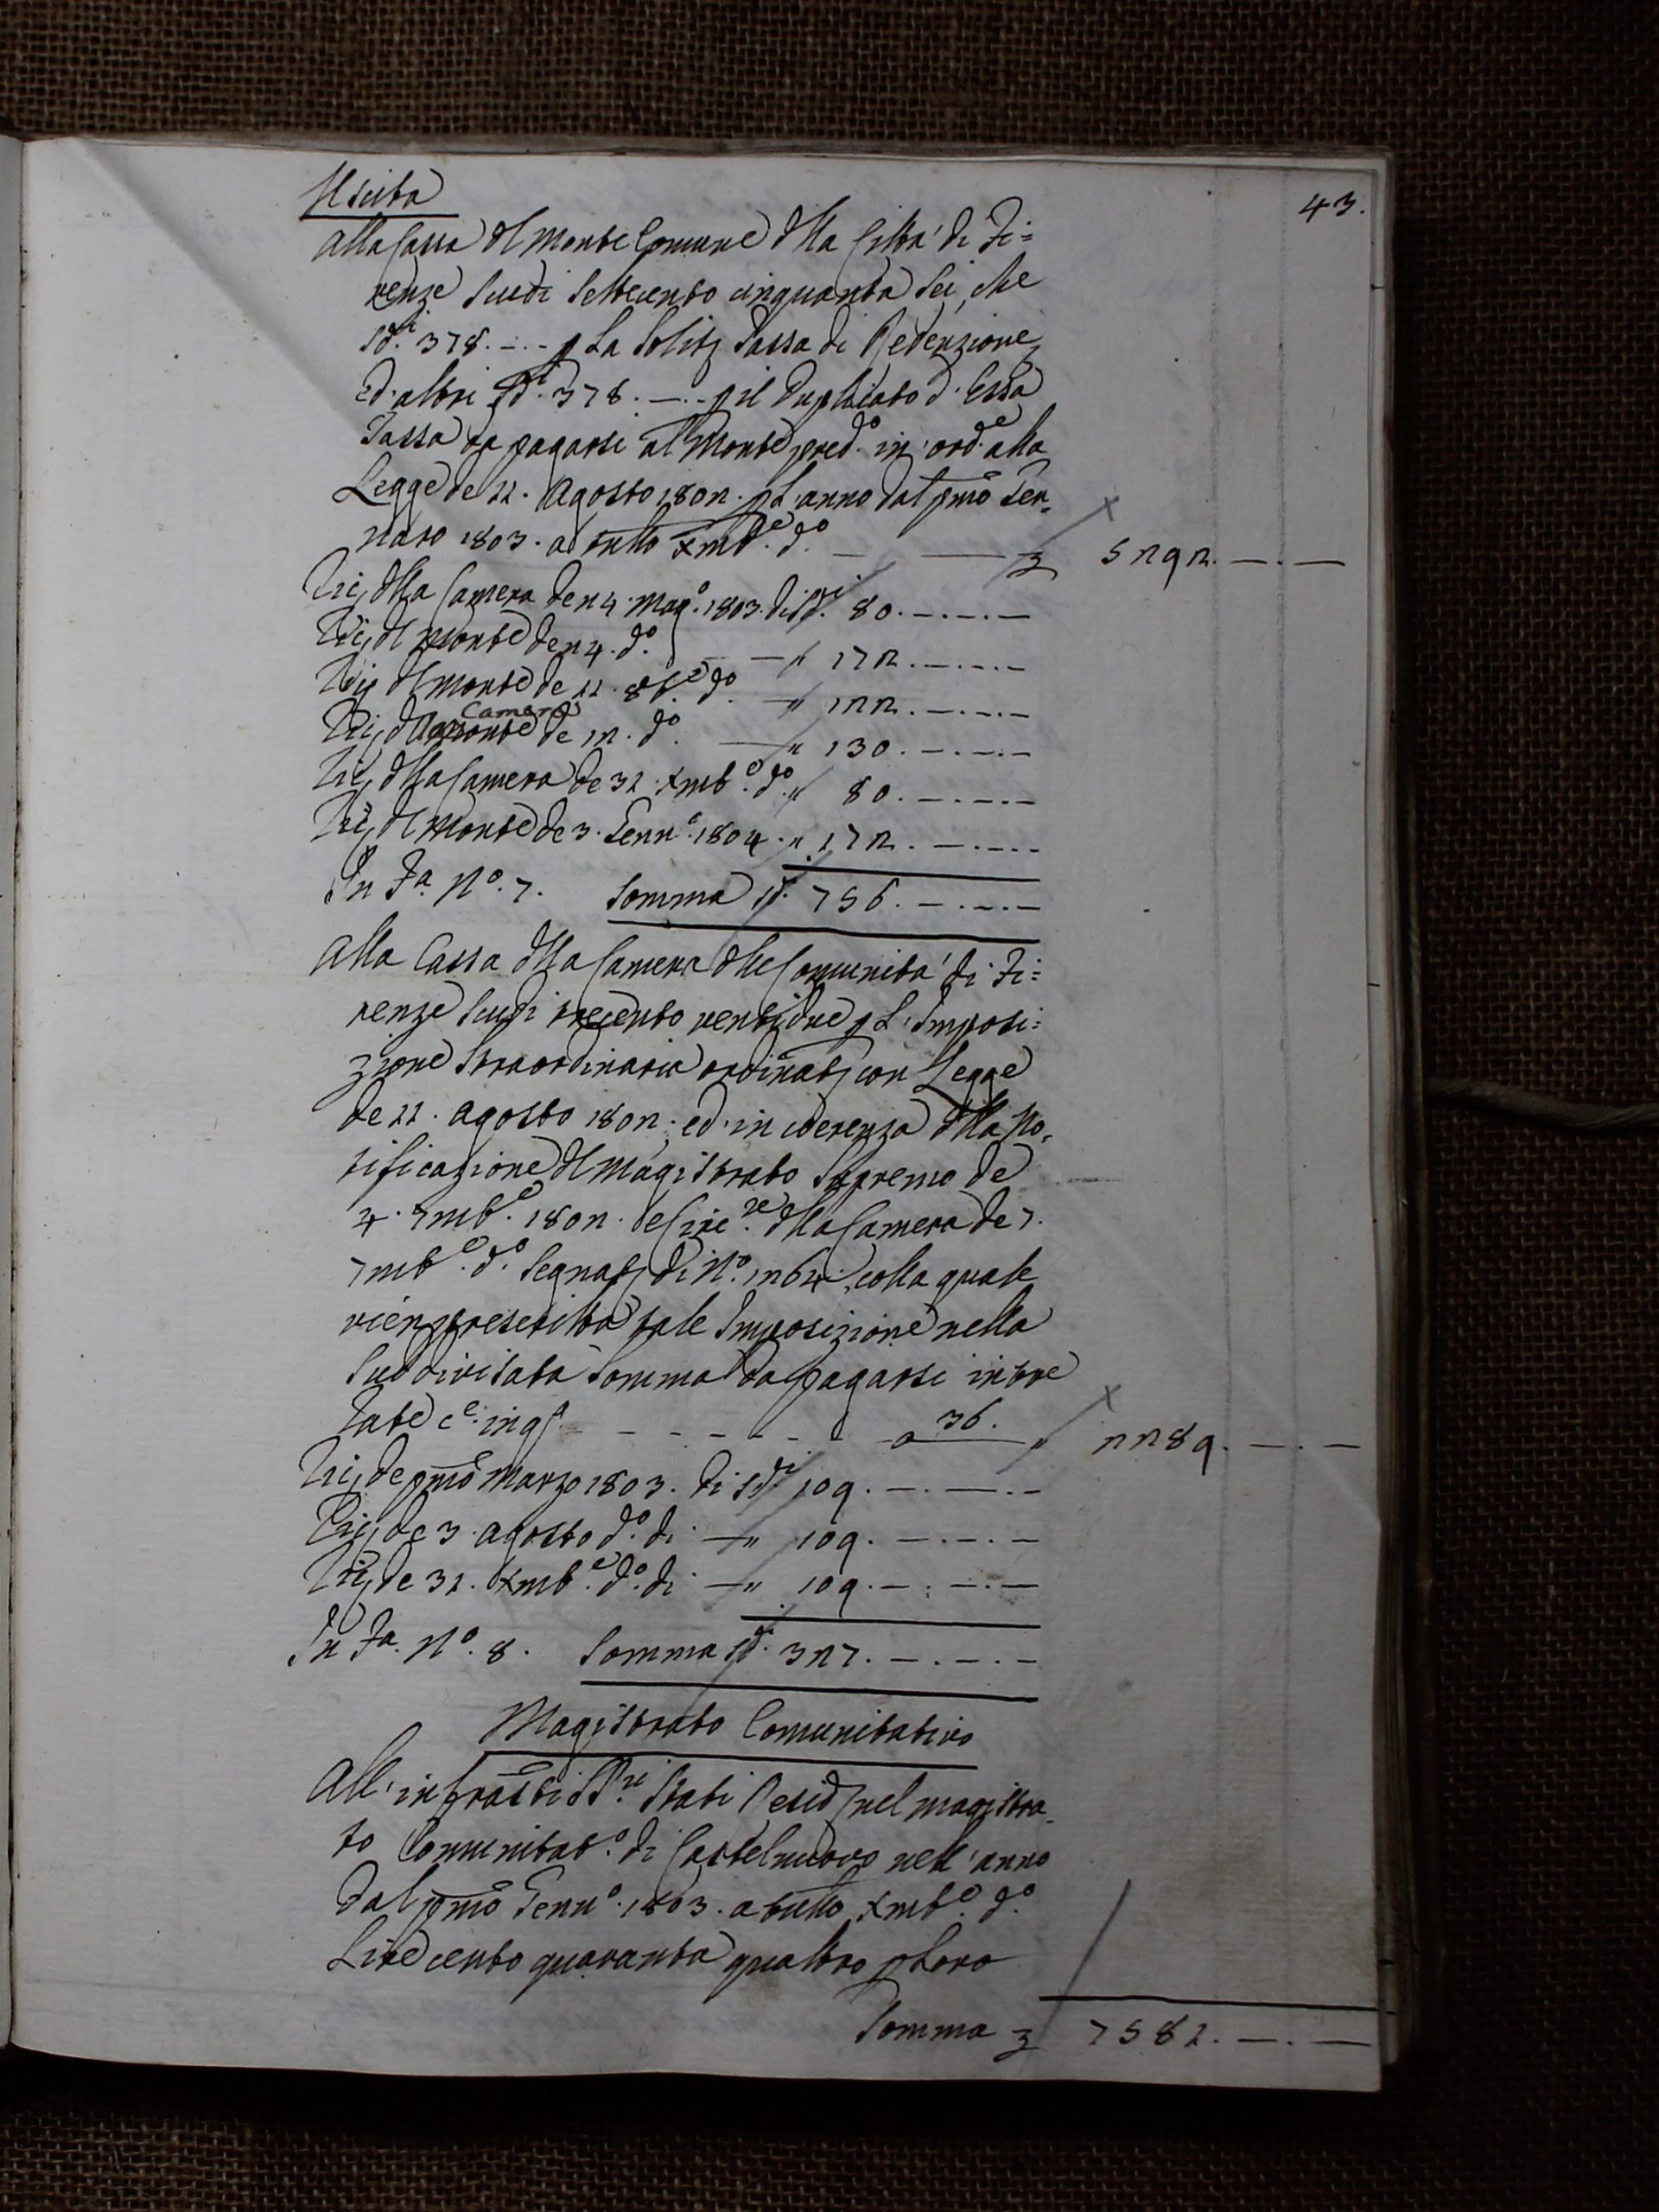 43.
Uscita
Alla Cassa dl Monte Comune dlla Città di Fi=
renze Scudi Settecento cinquanta Sei, che
Sd.i 378. -.- p La Solita Tassa di Redenzione,
ed altri Sd.i 378. -.- p il Duplicato d'Essa
Tassa da pagarsi al Monte pred.o in ord.e alla
Legge de 11. Agosto 1802. p L'anno dal pmo Gen=
naro 1803. a tutto Xmb.e d.o — — £ 5292. -.-
Ric. dlla Camera de 24. Mag.o 1803. di Sd.i 80. -.-.-
Ric. dl Monte de 24. d.o — " 172. -.-.-
Ric. dl Monte de 11. 8b.e d.o — " 122. -.-.-
Camera
Ric. dlla Monte de 12. d.o — " 130. -.-.-
Ric. dlla Camera de 31. Xmb.e d.o " 80. -.-.-
Ric. dl Monte de 3. Genn.o 1804. " 172. -.-.-
In Fa. N.o 7. Somma Sd. 756. -.-.-
Alla Cassa dlla Camera dlle Comunità di Fi=
renze Scudi trecento ventisette p L'Imposi=
zione Straordinaria ordinata con Legge
de 11. Agosto 1802. ed in coerenza dlla No=
tificazione dl Magistrato Supremo de
4. 7mb.e 1802. e Circ.re dlla Camera de 7.
7mb.e d.o Segnata di N.o 1264. colla quale
vien prescritta tale Imposizione nella
Suddivisata Somma da pagarsi in tre
Rate c.e in q.a - - - - - a 36. " 2289. -.-
Ric. de pmo Marzo 1803. di Sd.i 109. -.-.-
Ric. de 3. Agosto d.o di — " 109. -.-.-
Ric. de 31. Xmb.e d.o di — " 109. -.-.-
In Fa. N.o 8. Somma Sd.i 327. -.-.-
Magistrato Comunitativo
All'infrascti SS.ri Stati Resid. nel Magistra=
to Comunitat.o di Castelnuovo nell'anno
dal pmo Genn.o 1803. a tutto Xmb.e d.o
Lire cento quaranta quattro p Loro
Somma £ 7581. -.-